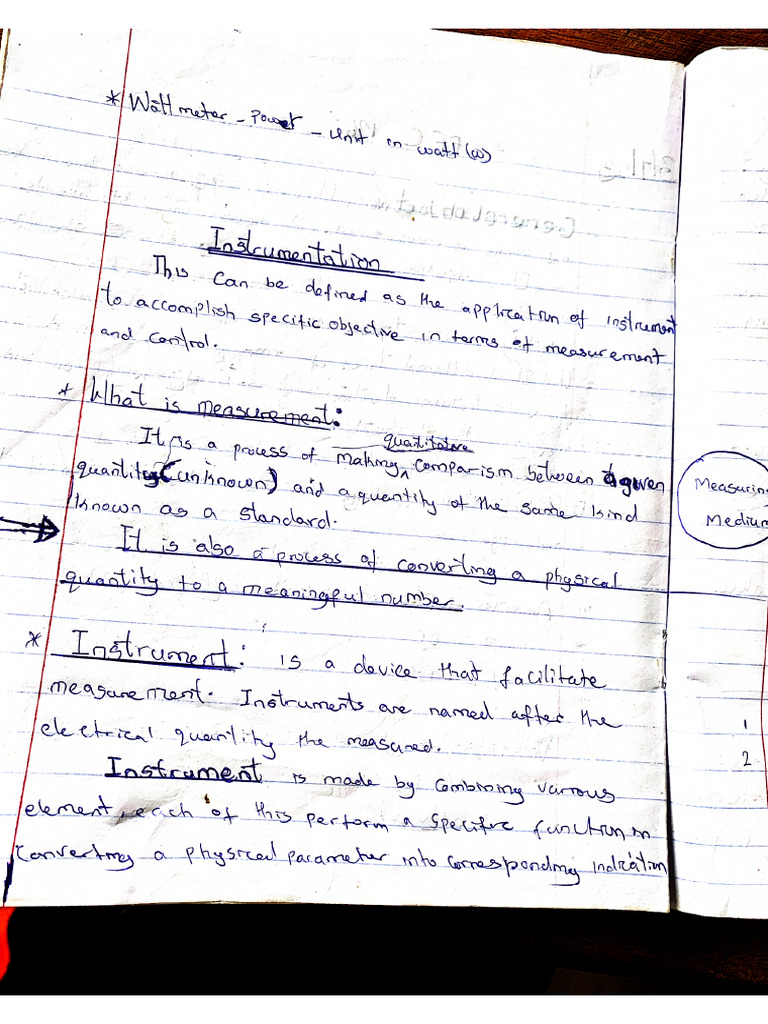 * Wattmeter - Power - Unit in watt (w)
Instrumentation
This can be defined as the application of instrument
to accomplish specific objective in terms of measurement
and control.
* What is measurement:
It is a process of making quantitative comparism between a given
quantity (unknown) and a quantity of the same kind
known as a standard.
It is also a process of converting a physical
quantity to a meaningful number.
* Instrument: is a device that facilitate
measurement. Instruments are named after the
electrical quantity the measured.
Instrument is made by combining various
element, each of this perform a specific function in
converting a physical parameter into corresponding indication
Measuring
Medium
1
2